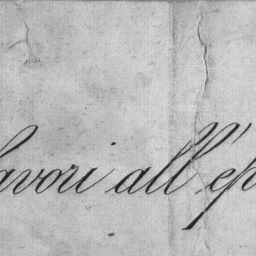 avori all'ép